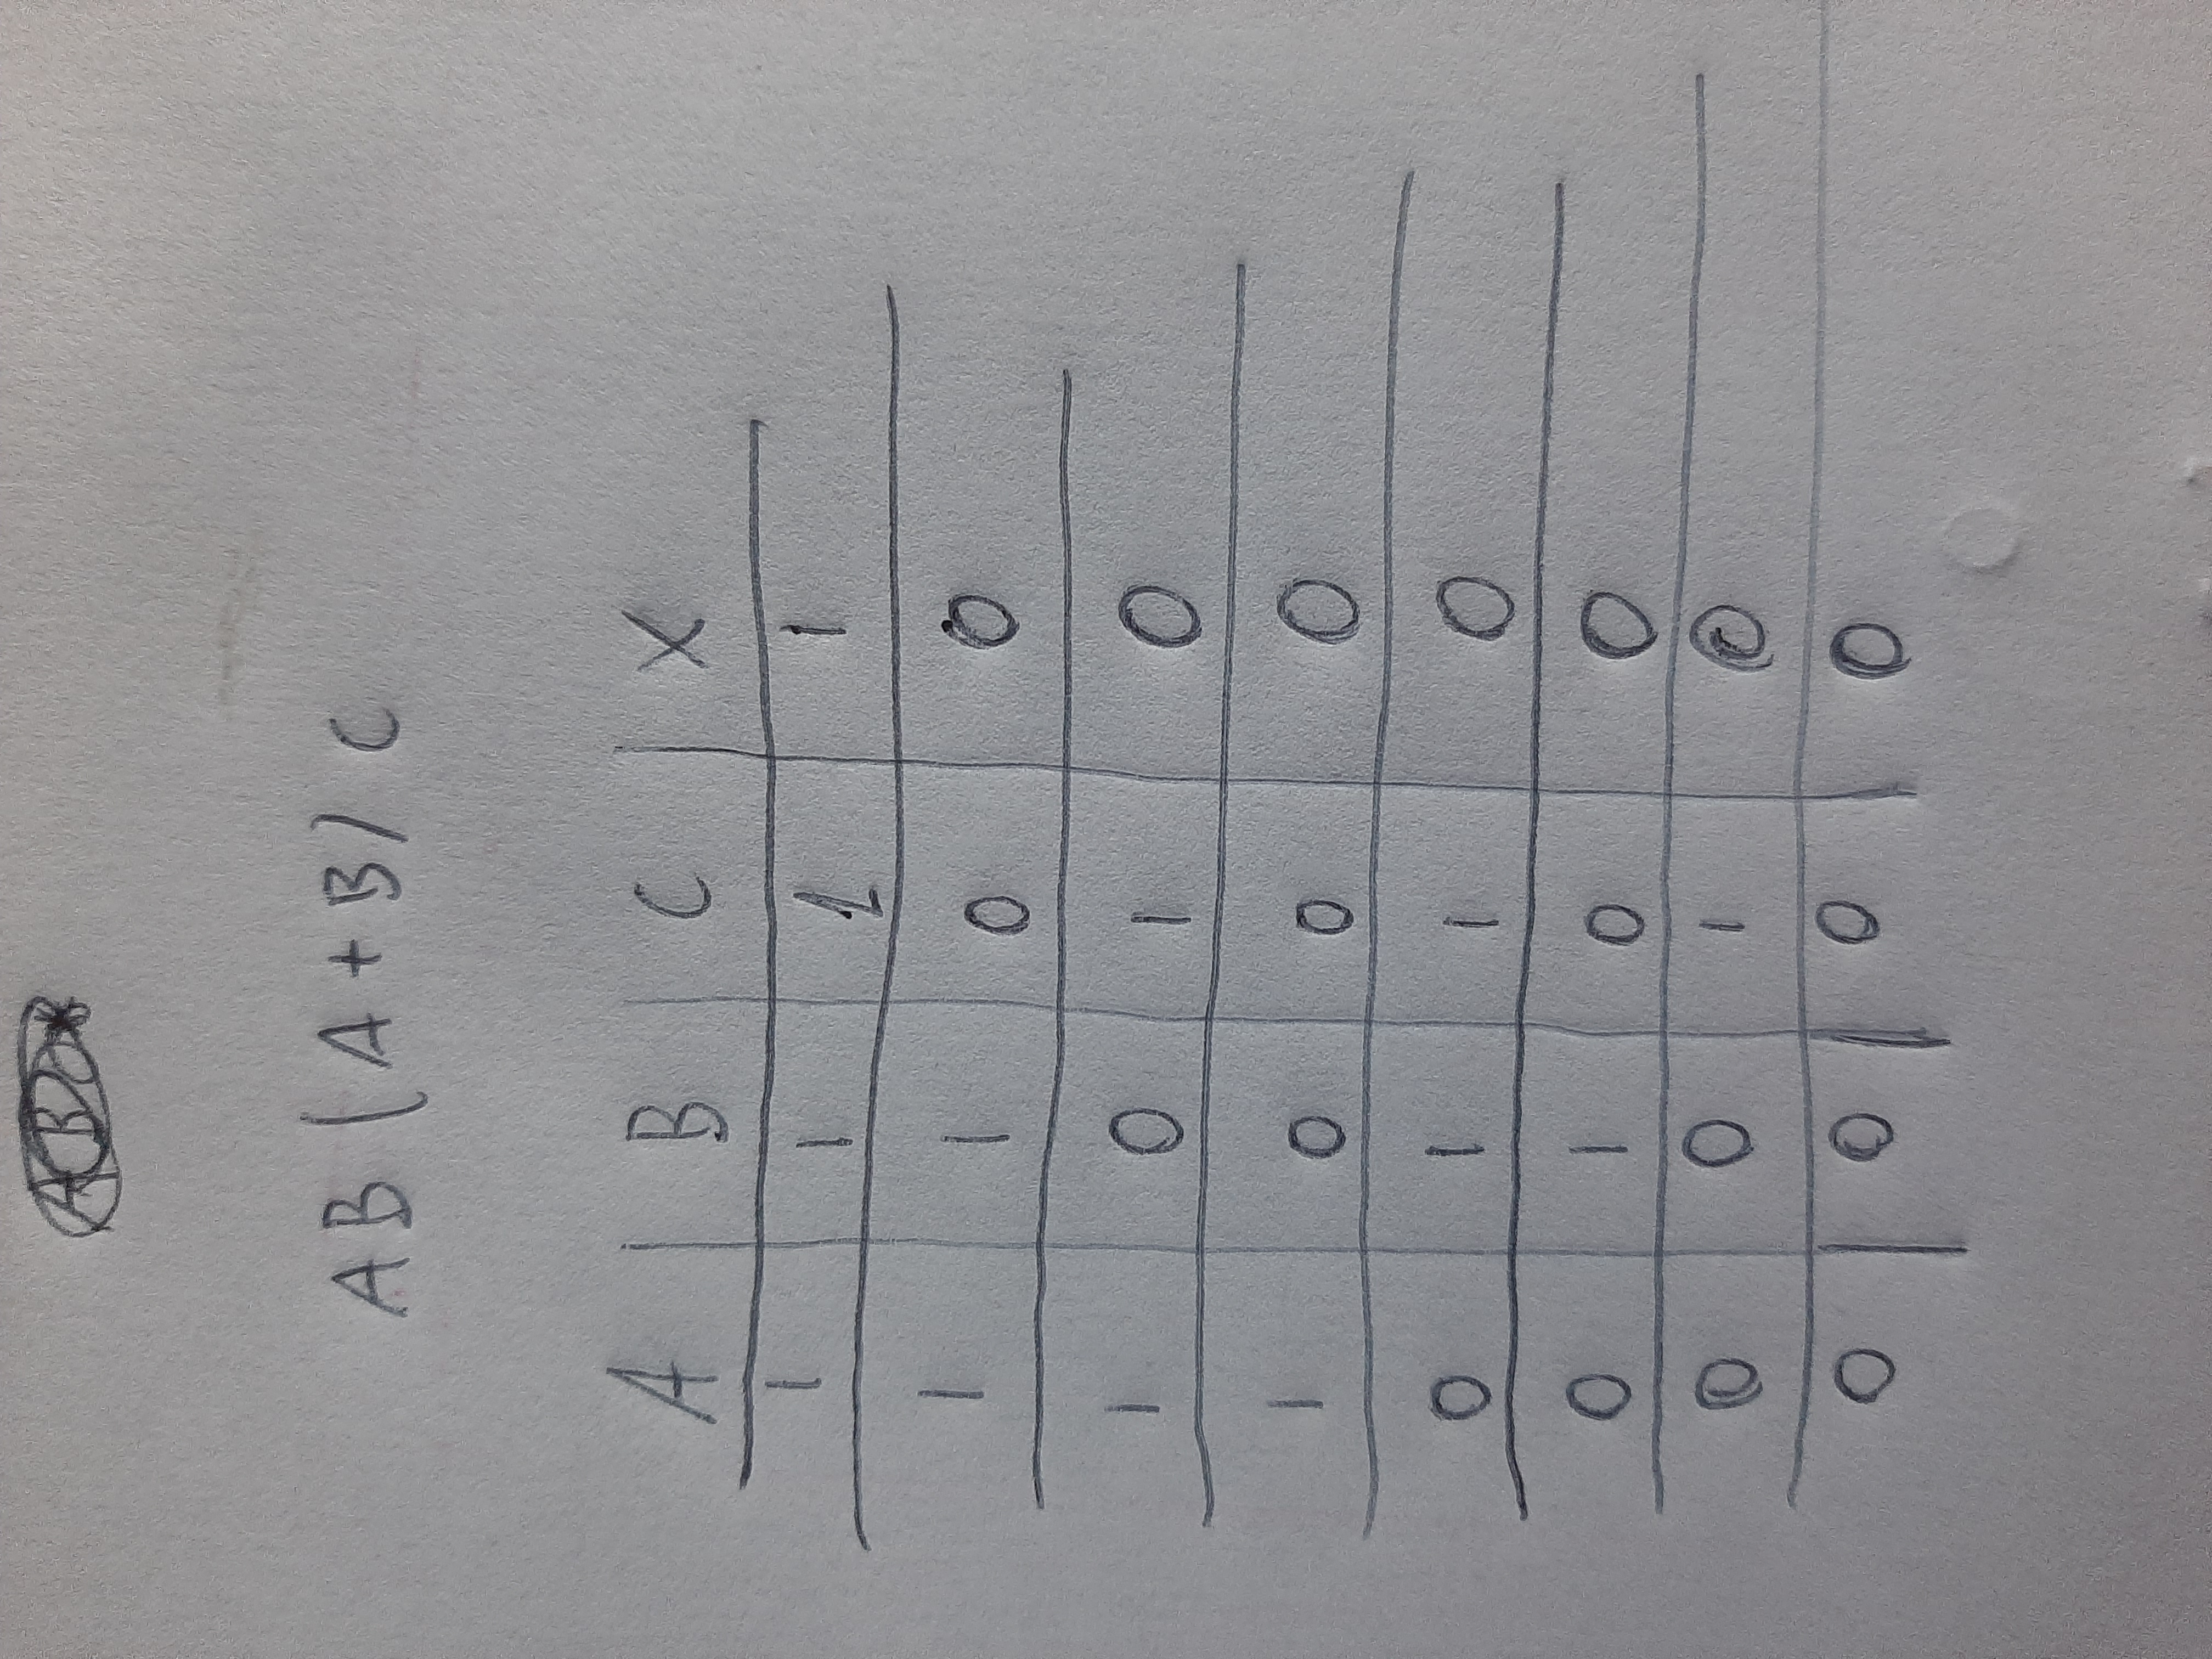 AB (A + B) C
A B C X
1 1 1 1
1 1 0 0
1 0 1 0
1 0 0 0
0 1 1 0
0 1 0 0
0 0 1 0
0 0 0 0